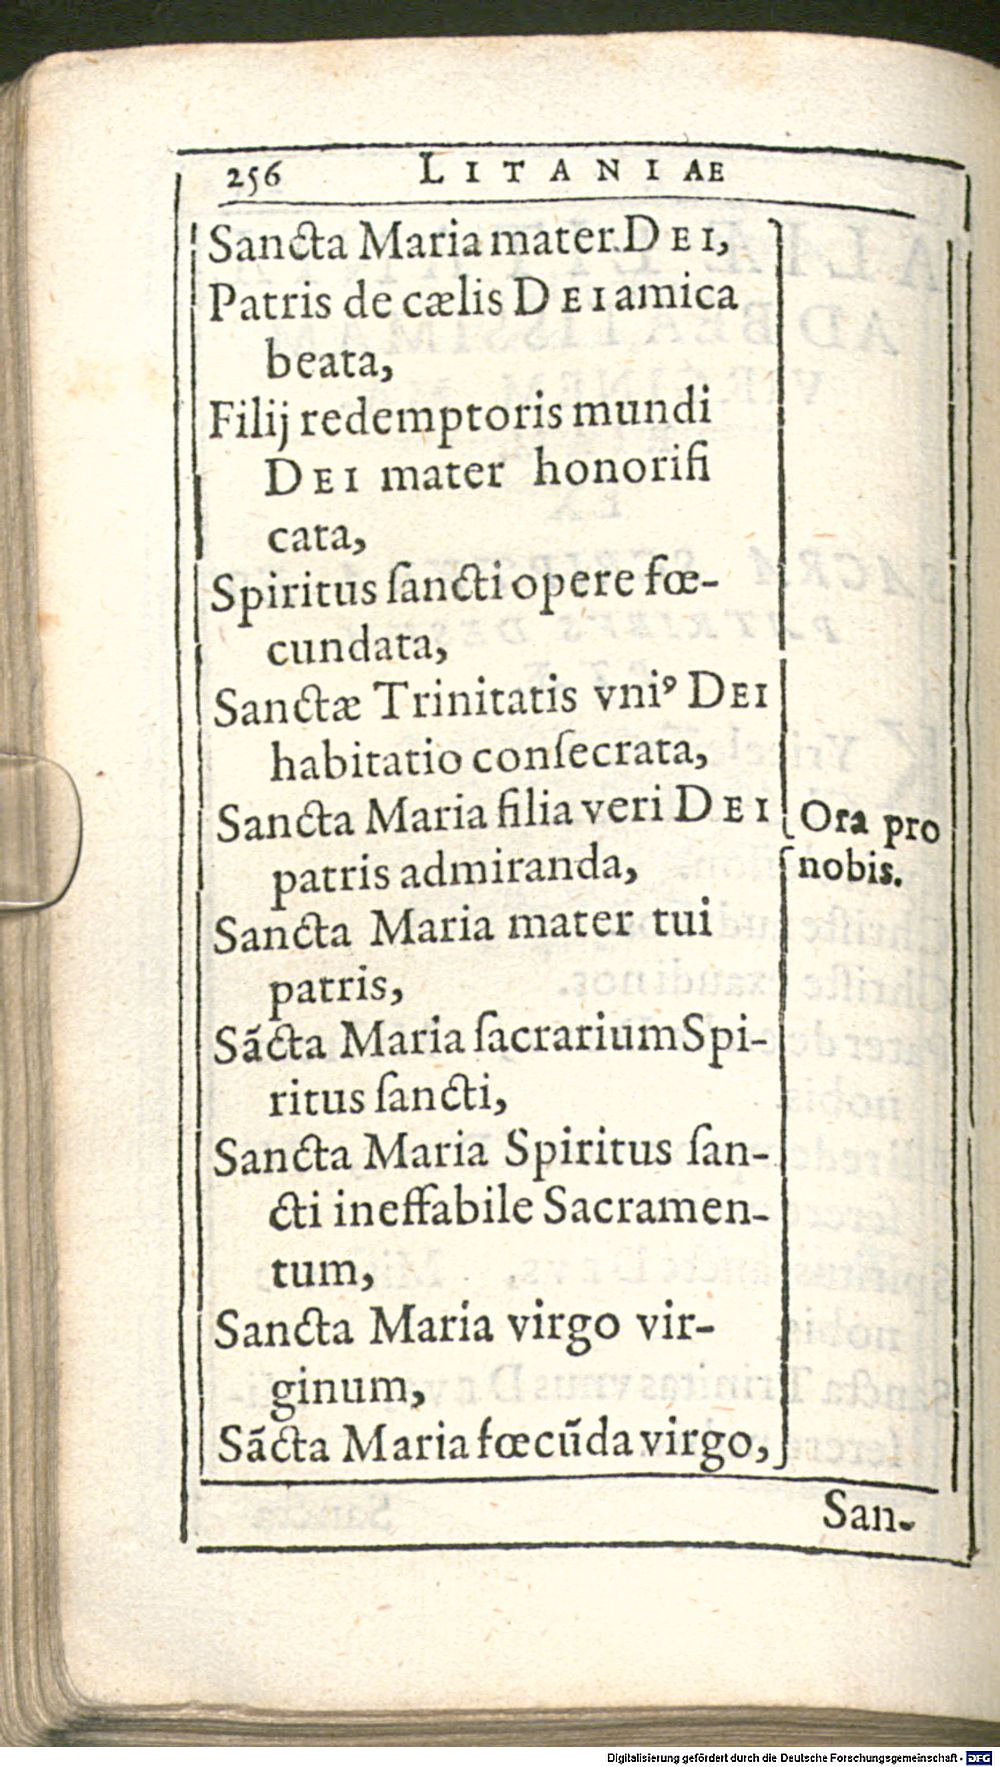 256 LITANIAE
Sancta Maria mater DEI,
Patris de cælis DEI amica
beata,
Filij redemptoris mundi
DEI mater honorifi
cata,
Spiritus ſancti opere fœ-
cundata,
Sanctæ Trinitatis vniꝰ DEI
habitatio conſecrata,
Sancta Maria filia veri DEI
patris admiranda,
Sancta Maria mater tui
patris,
Sãcta Maria ſacrarium Spi-
ritus ſancti,
Sancta Maria Spiritus ſan-
cti ineffabile Sacramen-
tum,
Sancta Maria virgo vir-
ginum,
Sãcta Maria fœcũda virgo,
Ora pro
nobis.
San-
Digitalisierung gefördert durch die Deutsche Forschungsgemeinschaft - DFG